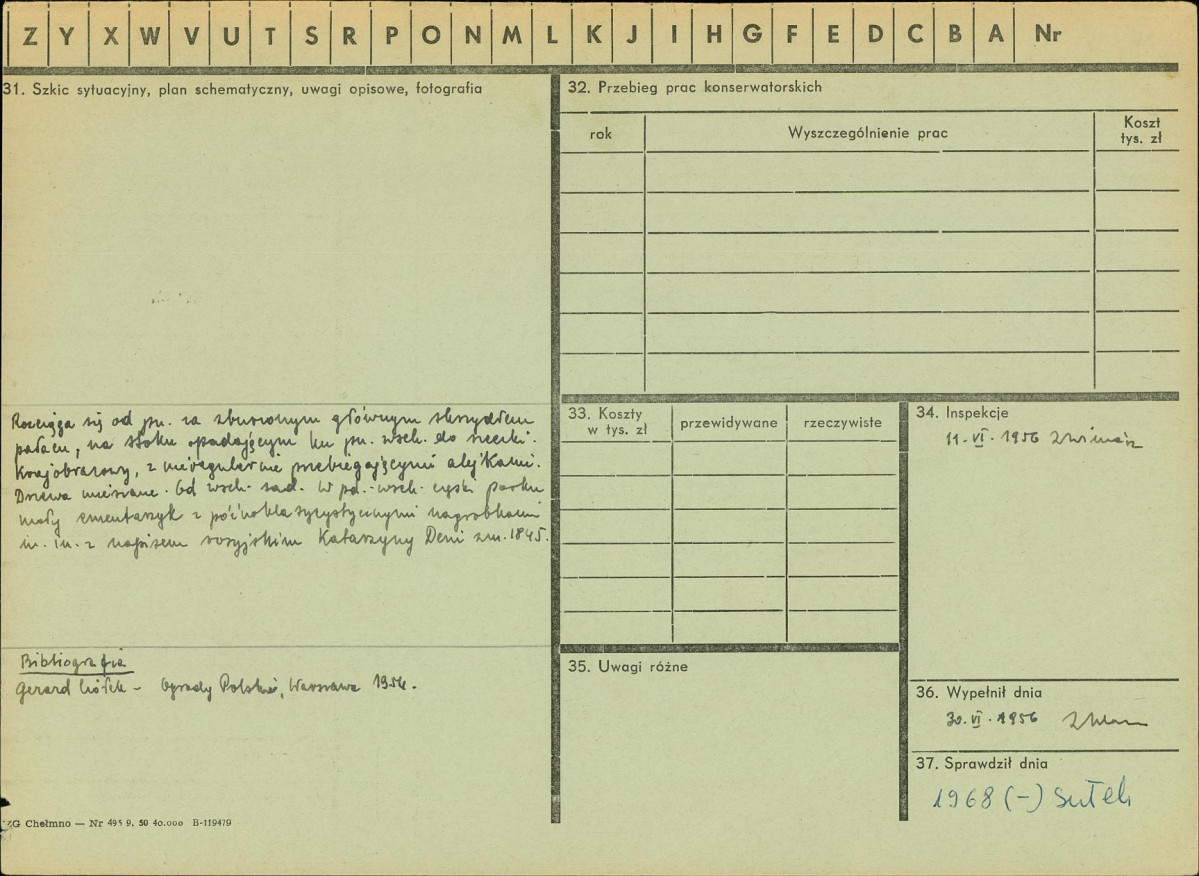 Z Y X W V U T S R P O N M L K J I H G F E D C B A Nr
31. Szkic sytuacyjny, plan schematyczny, uwagi opisowe, fotografia
Rozciąga się od pn. za zburzonym głównym skrzydłem
pałacu, na stoku opadającym ku pn. wsch. do rzeczki.
Krajobrazowy, z nieregularnie przebiegającymi alejkami.
Drzewa mieszane. Od wsch. sad. W pd.-wsch. części parku
mały cmentarzyk z późnoklasycystycznymi nagrobkami
m. in. z napisem rosyjskim Katarzyny Deni zm. 1845.
Bibliografia
Gerard Ciołek – Ogrody Polskie, Warszawa 1954.
ZG Chełmno — Nr 495 9. 50 40.000 B-119479
32. Przebieg prac konserwatorskich
rok Wyszczególnienie prac Koszt
tys. zł
33. Koszty
w tys. zł przewidywane rzeczywiste
34. Inspekcje
11. VI. 1956
35. Uwagi różne
36. Wypełnił dnia
30. VI. 1956
37. Sprawdził dnia
1968 (-)